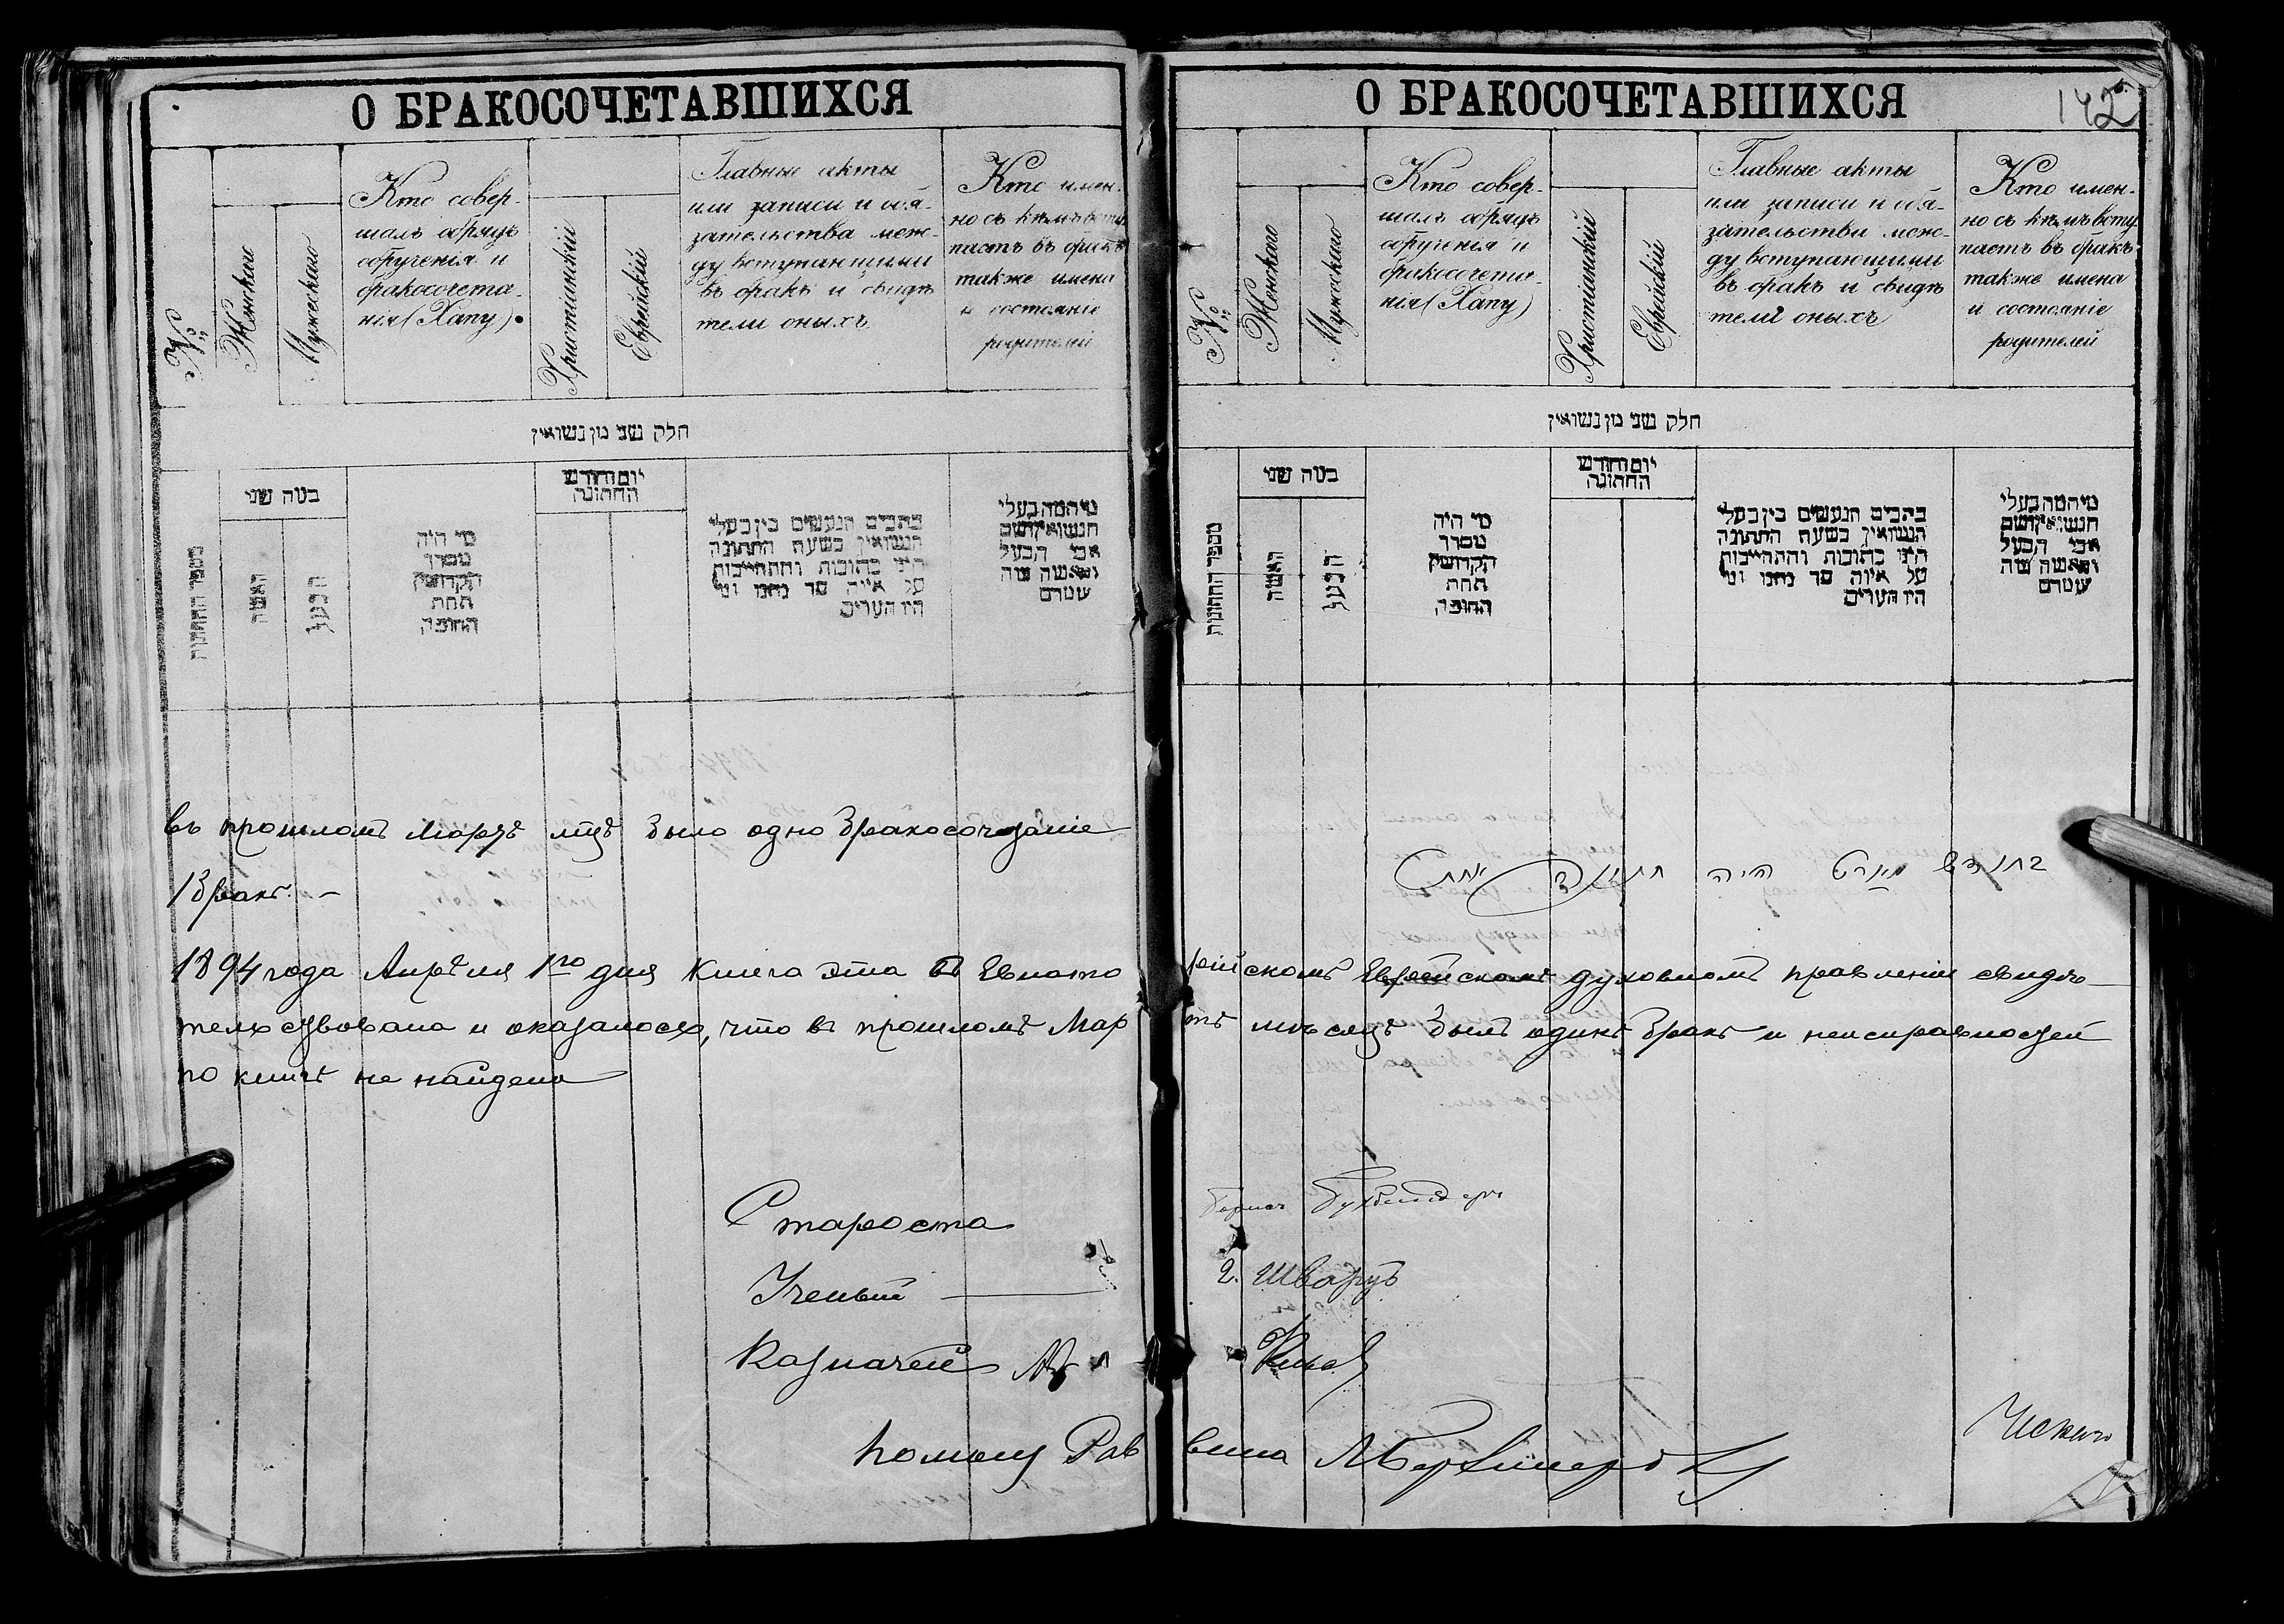 О БРАКОСОЧЕТАВШИХСЯ
№
Женскаго
Мужескаго
Кто совер-
шалъ обрядъ
обрученія и
бракосочета-
нія (Хапу).
Христіанскій
Еврейскій
Главные акты
или записи и обя-
зательства меж-
ду вступающими
въ бракъ и свидѣ
тели оныхъ
Кто имен-
но съ кѣмъ всту
паетъ въ бракъ
также имена
и состояніе
родителей
חלק שני מן נשואין
מספר החתונות
כמה שני
האשה
הבעל
מי היה
מסדר
הקדושין
תחת
החופה
יום וחודש
החתונה
כתבים הנעשים בין בעלי
הנשואין בשעת החתונה
היינו כתובות והתחייבות
על איזה סך נתנו ומי
היו העדים
מי המה בעלי
הנשואין ושם
אבי הבעל
והאשה ומה
שטרם
въ прошломъ Мартѣ мцѣ было одно бракосочетаніе
1 бракъ. —
1894 года Апрѣля 1го дня Книга эта въ Евпато
тельствована и оказалось, что въ прошломъ Мар
по книгѣ не найдено
Староста
Ученый
Казначей
помощ Рав
О БРАКОСОЧЕТАВШИХСЯ
142
№
Женскаго
Мужескаго
Кто совер-
шалъ обрядъ
обрученія и
бракосочета-
нія (Хапу)
Христіанскій
Еврейскій
Главные акты
или записи и обя-
зательства меж-
ду вступающими
въ бракъ и свидѣ
тели оныхъ
Кто имен-
но съ кѣмъ всту
паетъ въ бракъ
также имена
и состояніе
родителей
חלק שני מן נשואין
מספר החתונות
כמה שני
האשה
הבעל
מי היה
מסדר
הקדושין
תחת
החופה
יום וחודש
החתונה
כתבים הנעשים בין בעלי
הנשואין בשעת החתונה
היינו כתובות והתחייבות
על איזה סך נתנו ומי
היו העדים
מי המה בעלי
הנשואין ושם
אבי הבעל
והאשה ומה
שטרם
בחודש מארט היה חתונה אחת
рійскомъ Еврейскомъ духовномъ правленіи свидѣ
тѣ мѣсяцѣ былъ одинъ бракъ и неисправностей
Борисъ
2. Шварцъ
вина